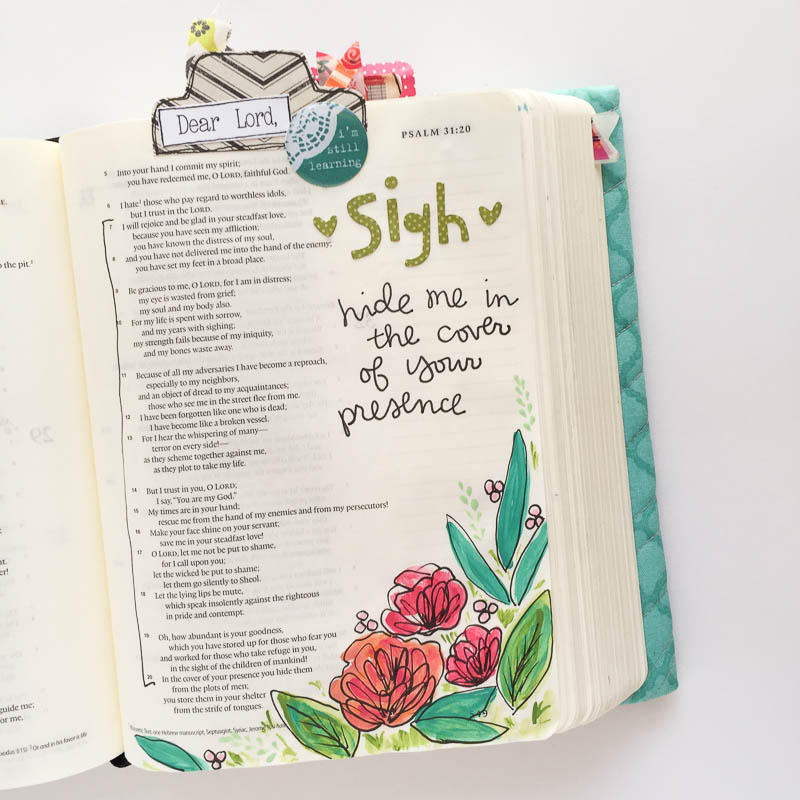 Dear Lord,
i'm
still
learning
PSALM 31:20
5 Into your hand I commit my spirit;
you have redeemed me, O LORD, faithful God.
6 I hate¹ those who pay regard to worthless idols,
but I trust in the LORD.
7 I will rejoice and be glad in your steadfast love,
because you have seen my affliction;
you have known the distress of my soul,
8 and you have not delivered me into the hand of the enemy;
you have set my feet in a broad place.
9 Be gracious to me, O LORD, for I am in distress;
my eye is wasted from grief;
my soul and my body also.
10 For my life is spent with sorrow,
and my years with sighing;
my strength fails because of my iniquity,
and my bones waste away.
11 Because of all my adversaries I have become a reproach,
especially to my neighbors,
and an object of dread to my acquaintances;
those who see me in the street flee from me.
12 I have been forgotten like one who is dead;
I have become like a broken vessel.
13 For I hear the whispering of many—
terror on every side!—
as they scheme together against me,
as they plot to take my life.
14 But I trust in you, O LORD;
I say, "You are my God."
15 My times are in your hand;
rescue me from the hand of my enemies and from my persecutors!
16 Make your face shine on your servant;
save me in your steadfast love!
17 O LORD, let me not be put to shame,
for I call upon you;
let the wicked be put to shame;
let them go silently to Sheol.
18 Let the lying lips be mute,
which speak insolently against the righteous
in pride and contempt.
19 Oh, how abundant is your goodness,
which you have stored up for those who fear you
and worked for those who take refuge in you,
in the sight of the children of mankind!
20 In the cover of your presence you hide them
from the plots of men;
you store them in your shelter
from the strife of tongues.
Text; one Hebrew manuscript, Septuagint, Syriac, Jerome
Sigh
hide me in
the cover
of your
presence
the pit.¹
29
guide me;
or me,
Or and in his favor is life